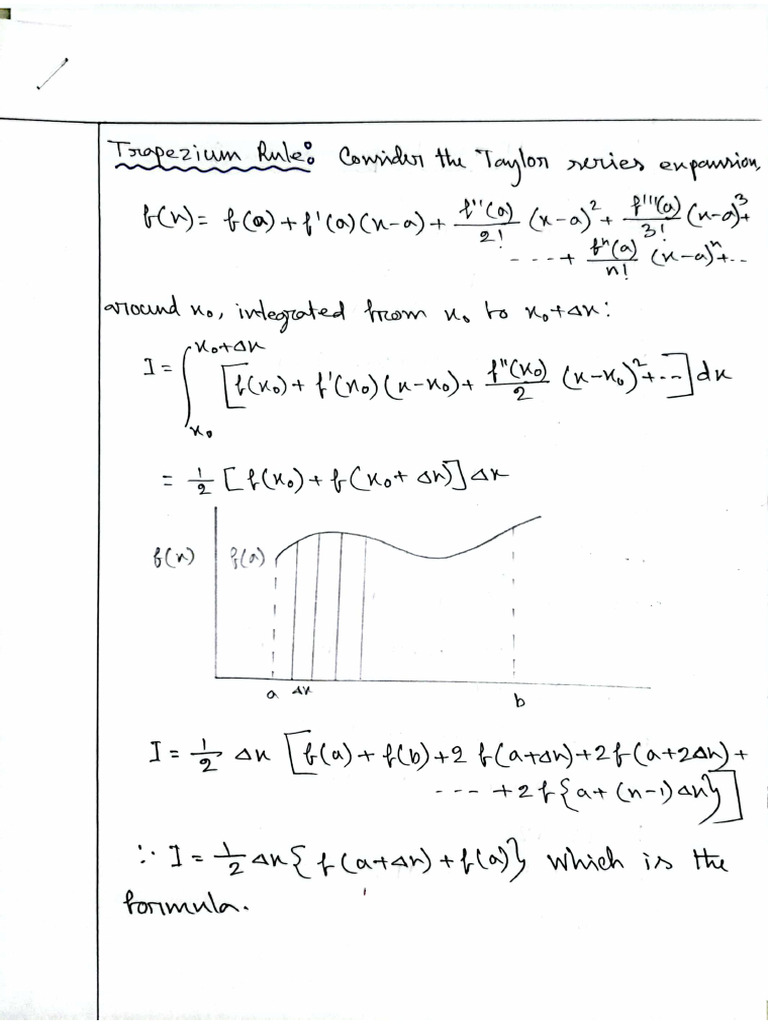 Trapezium Rule: Consider the Taylor series expansion,
f(x) = f(a) + f'(a)(x-a) + f''(a)/2! (x-a)² + f'''(a)/3! (x-a)³ +
---- + fⁿ(a)/n! (x-a)ⁿ + ..
around x₀, integrated from x₀ to x₀+Δx:
I = ∫_{x₀}^{x₀+Δx} [f(x₀) + f'(x₀)(x-x₀) + f''(x₀)/2 (x-x₀)² + ---] dx
= 1/2 [f(x₀) + f(x₀+Δx)] Δx
f(x) f(a)
a Δx b
I = 1/2 Δx [f(a) + f(b) + 2 f(a+Δx) + 2f(a+2Δx) +
---- + 2f{a+(n-1)Δx}]
∵ I = 1/2 Δx{f(a+Δx) + f(a)} which is the
formula.